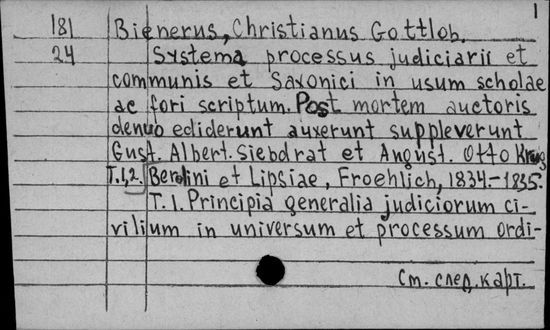 1
181 Bienerus, Christianus Gottlob.
24 Systema processus judiciarii et
communis et Saxonici in usum scholae
ac fori scriptum. Post mortem auctoris
denuo ediderunt auxerunt suppleverunt
Gust. Albert. Siebdrat et August. Otto Krug
T.1,2. Berolini et Lipsiae, Froehlich, 1834.-1835.
T. 1. Principia generalia judiciorum ci-
vilium in universum et processum ordi-
См. след. карт.